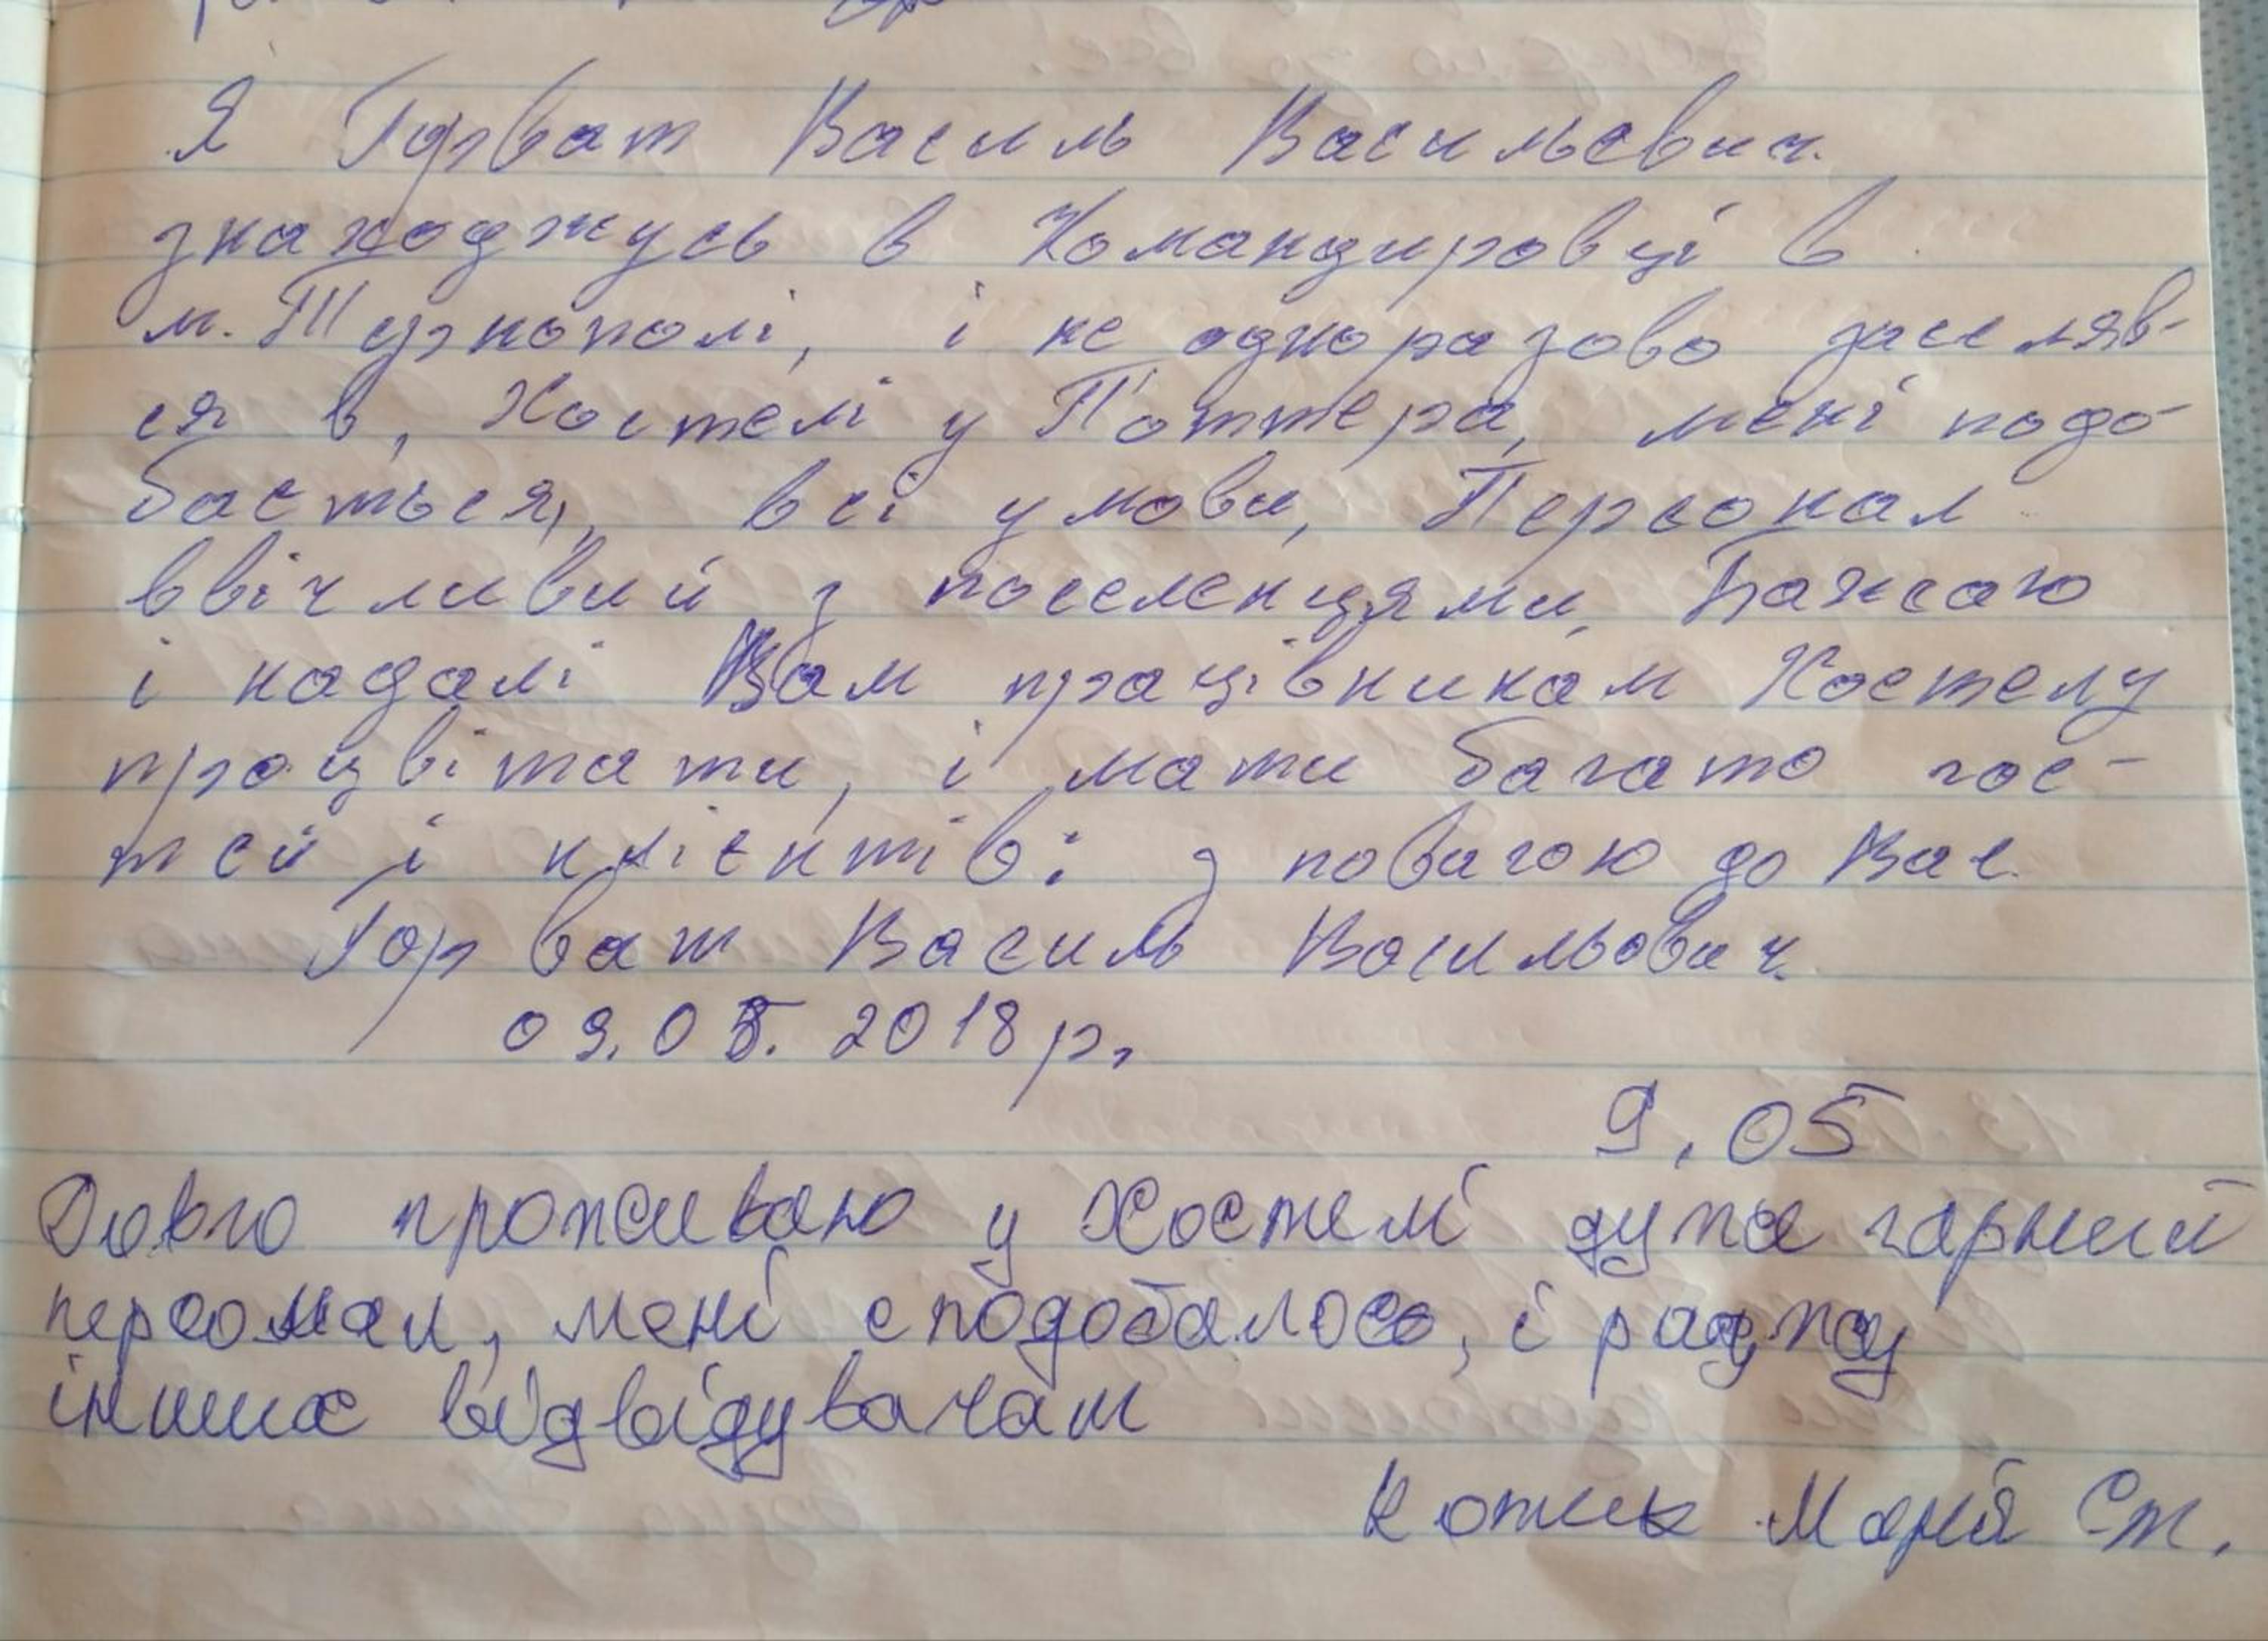 Я Горват Василь Васильєвич.
знаходжусь в Командировці в
м. Тернополі, і не одноразово заселяв-
ся в, Хостелі у Поттера, мені подо-
бається, всі умови, Персонал
ввічливий з поселенцями, Бажаю
і надалі Вам працівникам Хостелу
процвітати, і мати багато гос-
тей і клієнтів: з повагою до Вас.
Горват Василь Васильович.
09.05.2018р.
9.05
Довго проживаю у Хостелі дуже гарний
персонал, мені сподобалось, і раджу
іншим відвідувачам
Котик Марія Ст.